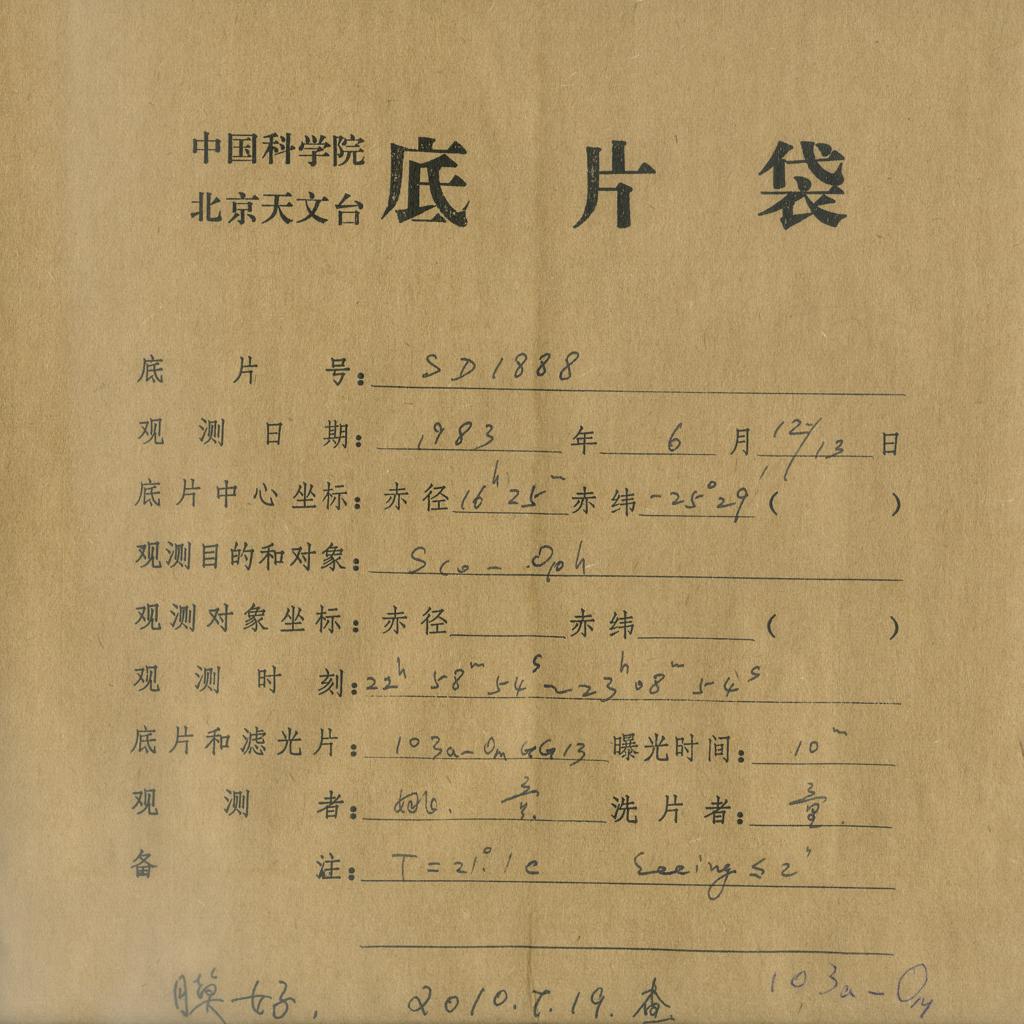 中国科学院
北京天文台
底片袋
底片号：SD1888
观测日期：1983年6月12/13日
底片中心坐标：赤径16h25m赤纬-25°29′（ ）
观测目的和对象：Sco-Oph
观测对象坐标：赤径 赤纬 （ ）
观测时刻：22h58m54s~23h08m54s
底片和滤光片：103a-Om GG13 曝光时间：10m
观测者：姚. 洗片者：
备注：T=21°.1c Seeing≤2"
103a-Om
膜好, 2010.7.19.查